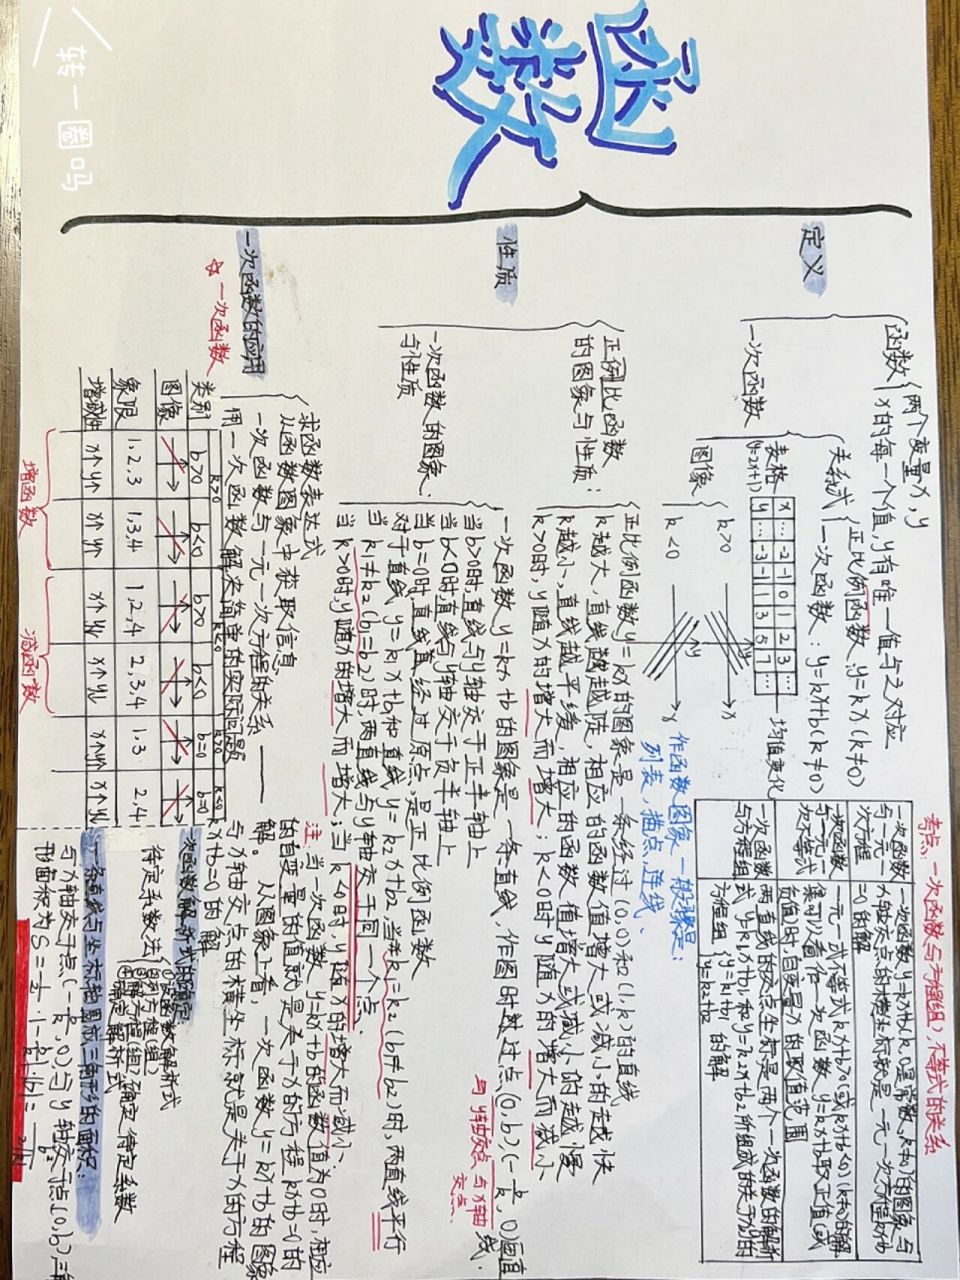 转一圈吗
函数
定义
函数
两个变量x,y
x的每一个值,y有唯一值与之对应
一次函数
关系式
正比例函数:y=kx(k≠0)
一次函数:y=kx+b(k≠0)
表格
(y=2x+1)
x … -2 -1 0 1 2 3 …
y … -3 -1 1 3 5 7 …
均值变化
图像
k>0
k<0
作函数图象一般步骤是:
列表,描点,连线
性质
正例比函数
的图象与性质:
正比例函数y=kx的图象是一条经过(0,0)和(1,k)的直线
k越大,直线越越陡,相应的函数值增大或减小的越快
k越小,直线越平缓,相应的函数值增大或减小的越慢
k>0时,y随x的增大而增大;k<0时y随x的增大而减小
一次函数的图象
与性质
一次函数y=kx+b的图象是一条直线,作图时过点(0,b),(-b/k,0)画直线.
与y轴交点 与x轴交点
当b>0时,直线与y轴交于正半轴上
当b<0时,直线与y轴交于负半轴上
当b=0时,直线直经过原点,是正比例函数
对于直线y=k₁x+b₁和直线y=k₂x+b₂,当k₁=k₂(b₁≠b₂)时,两直线平行
当k₁≠k₂(b₁=b₂)时,两直线与y轴交于同一个点
当k>0时,y随x的增大而增大;当k<0时,y随x的增大而减小.
一次函数的应用
求函数表达式
从函数图象中获取信息
一次函数与一元一次方程的关系
用一次函数解决简单的实际问题
注:当一次函数y=kx+b的函数值为0时,相应
的自变量的值就是关于x的方程kx+b=0的
解。从图象上看,一次函数y=kx+b的图象
与x轴交点的横坐标就是关于x的方程
kx+b=0的解
☆一次函数
k>0 k<0 k>0 k<0
类别 b>0 b<0 b>0 b<0 b=0 b=0
图像
象限 1,2,3 1,3,4 1,2,4 2,3,4 1.3 2,4
增减性 x↑y↑ x↑y↑ x↑y↓ x↑y↓ x↑y↑ x↑y↓
增函数
减函数
考点:一次函数与方程(组),不等式的关系
一次函数与一元一次方程 一次函数y=kx+b(k,b是常数,k≠0)的图象与x轴交点的横坐标就是一元一次方程kx+b=0的解
一次函数与一元一次不等式 一元一式不等式kx+b>0(或kx+b<0)(k≠0)的解集可以看作一次函数y=kx+b取正值(或负值)时自变量x的取值范围
一次函数与方程组 两直线的交点坐标是两个一次函数的解析式y=k₁x+b₁和y=k₂x+b₂所组成的关于x,y的方程组 y=k₁x+b₁ y=k₂x+b₂ 的解
一次函数解析式的确定:
待定系数法
①设函数解析式
②列方程(组)
③解方程(组),确定待定系数
④确定解析式
一条直线与坐标轴围成三角形的面积:
与x轴交于点(-b/k,0),与y轴交于点(0,b),三角
形面积为S=1/2·|-b/k|·|b|=b²/2|k|